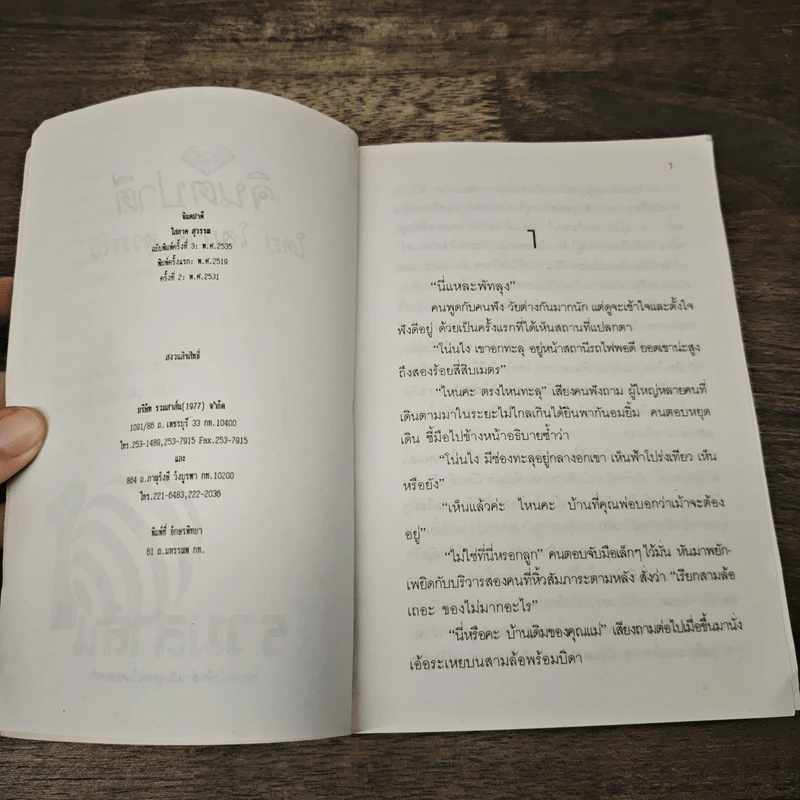 จินตปาตี
โสภาค สุวรรณ
ฉบับพิมพ์ครั้งที่ 3: พ.ศ.2535
พิมพ์ครั้งแรก: พ.ศ.2519
ครั้งที่ 2: พ.ศ.2531
สงวนลิขสิทธิ์
บริษัท รวมสาส์น(1977) จำกัด
1091/86 ถ.เพชรบุรี 33 กท.10400
โทร.253-1489,253-7915 Fax.253-7915
และ
864 ถ.ภาณุรังษี วังบูรพา กท.10200
โทร.221-6483,222-2036
พิมพ์ที่ อักษรพิทยา
61 ถ.มหรรณพ กท.
1
1
“นี่แหละพัทลุง”
คนพูดกับคนฟัง วัยต่างกันมากนัก แต่ดูจะเข้าใจและตั้งใจ
ฟังดีอยู่ ด้วยเป็นครั้งแรกที่ได้เห็นสถานที่แปลกตา
“โน่นไง เขาอกทะลุ อยู่หน้าสถานีรถไฟพอดี ยอดเขาน่ะสูง
ถึงสองร้อยสี่สิบเมตร”
“ไหนคะ ตรงไหนทะลุ” เสียงคนฟังถาม ผู้ใหญ่หลายคนที่
เดินตามมาในระยะไม่ไกลเกินได้ยินพากันอมยิ้ม คนตอบหยุด
เดิน ชี้มือไปข้างหน้าอธิบายซ้ำว่า
“โน่นไง มีช่องทะลุอยู่กลางอกเขา เห็นฟ้าโปร่งเทียว เห็น
หรือยัง”
“เห็นแล้วค่ะ ไหนคะ บ้านที่คุณพ่อบอกว่าเม้าจะต้อง
อยู่”
“ไม่ใช่ที่นี่หรอกลูก” คนตอบจับมือเล็กๆ ไว้มั่น หันมาพยัก-
เพยิดกับบริวารสองคนที่หิ้วสัมภาระตามหลัง สั่งว่า “เรียกสามล้อ
เถอะ ของไม่มากอะไร”
“นี่หรือคะ บ้านเดิมของคุณแม่” เสียงถามต่อไปเมื่อขึ้นมานั่ง
เอ้อระเหยบนสามล้อพร้อมบิดา